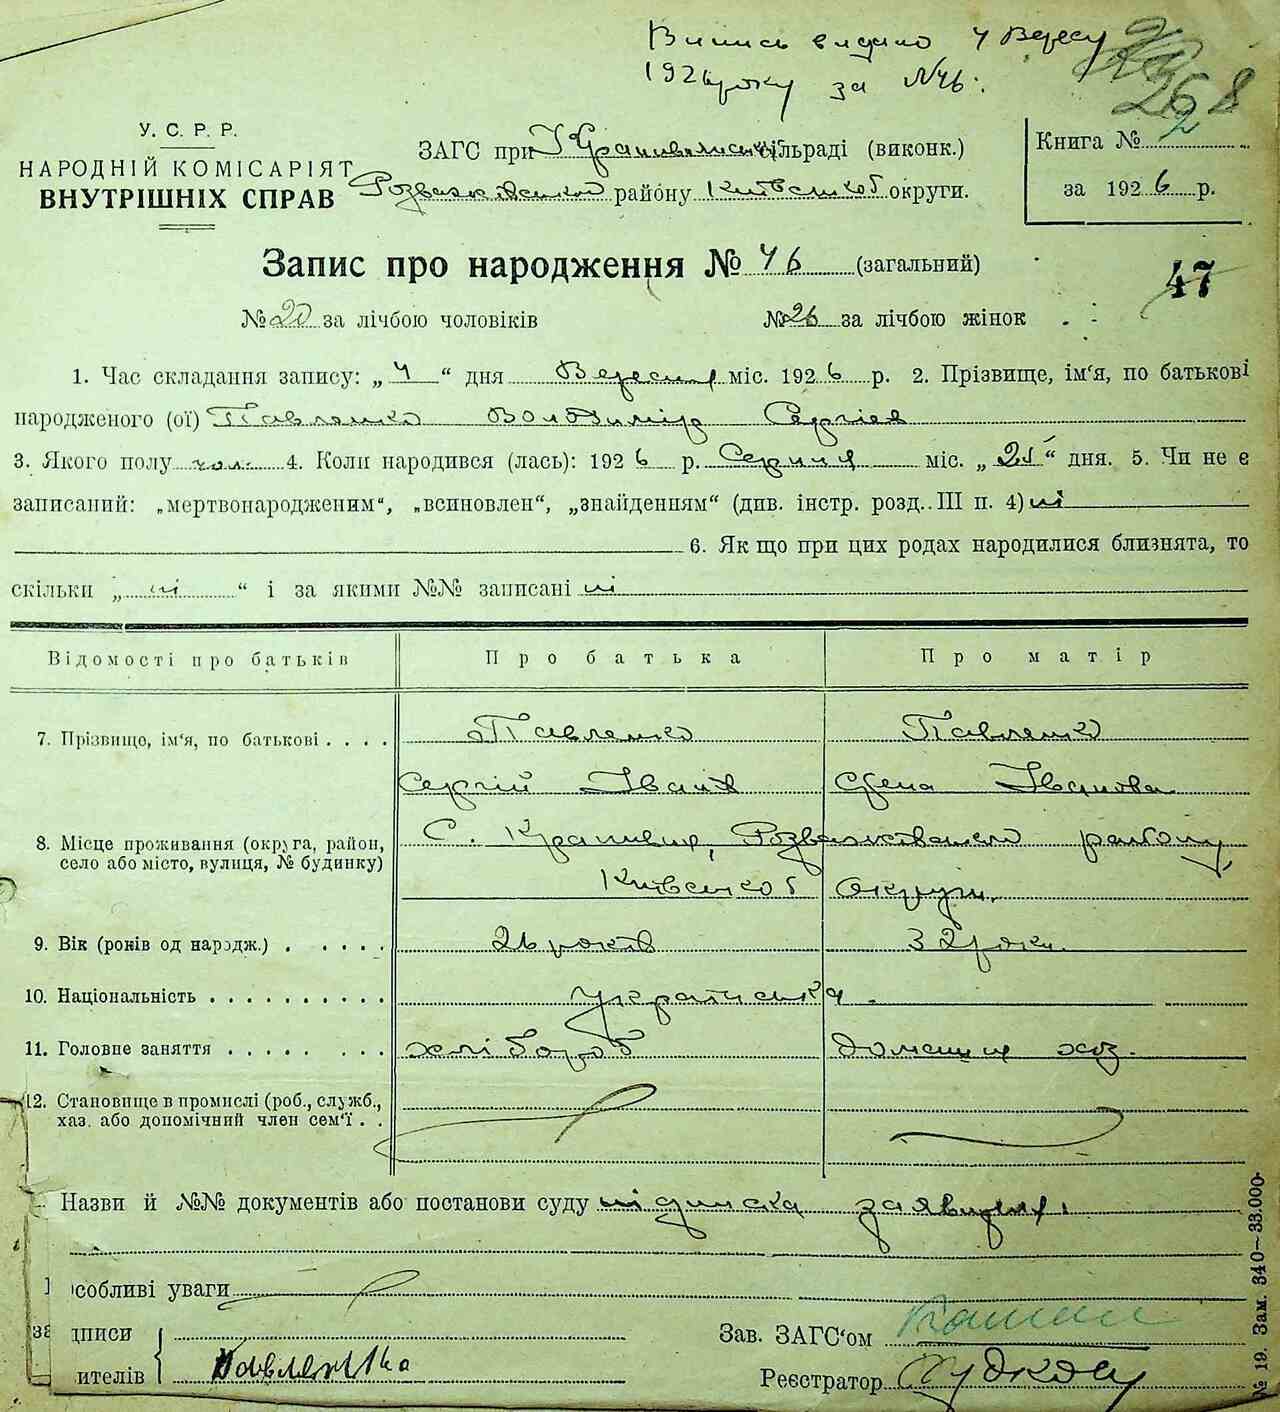 Випись видано 4 Вересу
1926 року за №46.
268
У. С. Р. Р.
НАРОДНІЙ КОМІСАРІЯТ
ВНУТРІШНІХ СПРАВ
ЗАГС при сільраді (виконк.)
району Київської округи.
Книга № 2
за 1926 р.
Запис про народження № 46 (загальний)
47
№ 20 за лічбою чоловіків № 26 за лічбою жінок
1. Час складання запису: „4“ дня Вересня міс. 1926 р. 2. Прізвище, ім'я, по батькові
народженого (ої) Павленко Володимір Сергієв
3. Якого полу чол. 4. Коли народився (лась): 1926 р. Серпня міс. „25“ дня. 5. Чи не є
записаний: „мертвонародженим“, „всиновлен“, „знайденням“ (див. інстр. розд. III п. 4) ні
6. Як що при цих родах народилися близнята, то
скільки „ні“ і за якими №№ записані ні
Відомості про батьків Про батька Про матір
7. Прізвище, ім'я, по батькові . . . . Павленко Павленко
Сергій Іванів Єлена Іванова
8. Місце проживання (округа, район,
село або місто, вулиця, № будинку)
С. Крапивня, Розважівського району,
Київської Округи.
9. Вік (років од народж.) . . . . . 26 років 32 роки.
10. Національність . . . . . . . . . . українська.
11. Головне заняття . . . . . . . . хлібороб домашнє хоз.
12. Становище в промислі (роб., служб.,
хаз. або допомічний член сем'ї . .
Назви й №№ документів або постанови суду підписка заявителя.
собливі уваги
дписи
ителів Павленка
Зав. ЗАГС'ом
Реєстратор
№ 19. Зам. 340—33.000.